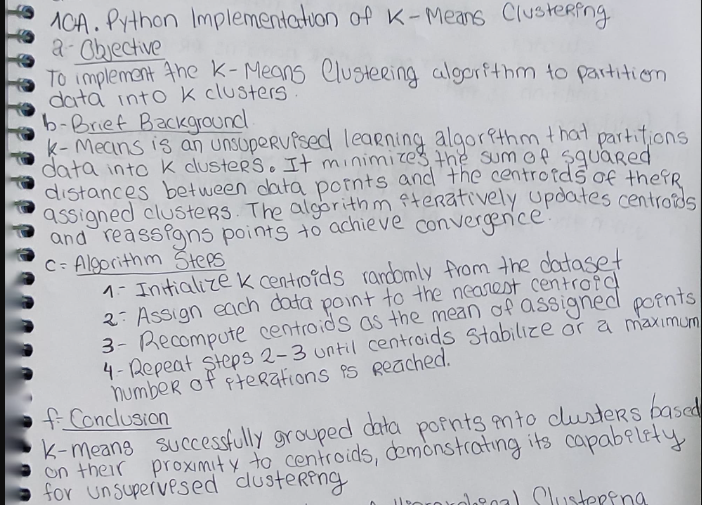 10A. Python Implementation of K-Means Clustering
a- Objective
To implement the K-Means Clustering algorithm to partition
data into K clusters.
b- Brief Background
K-Means is an unsupervised learning algorithm that partitions
data into K clusters. It minimizes the sum of squared
distances between data points and the centroids of their
assigned clusters. The algorithm iteratively updates centroids
and reassigns points to achieve convergence.
c- Algorithm Steps
1- Initialize K centroids randomly from the dataset
2- Assign each data point to the nearest centroid
3- Recompute centroids as the mean of assigned points
4- Repeat steps 2-3 until centroids stabilize or a maximum
number of iterations is reached.
f- Conclusion
K-means successfully grouped data points into clusters based
on their proximity to centroids, demonstrating its capability
for unsupervesed clustering
Clustering